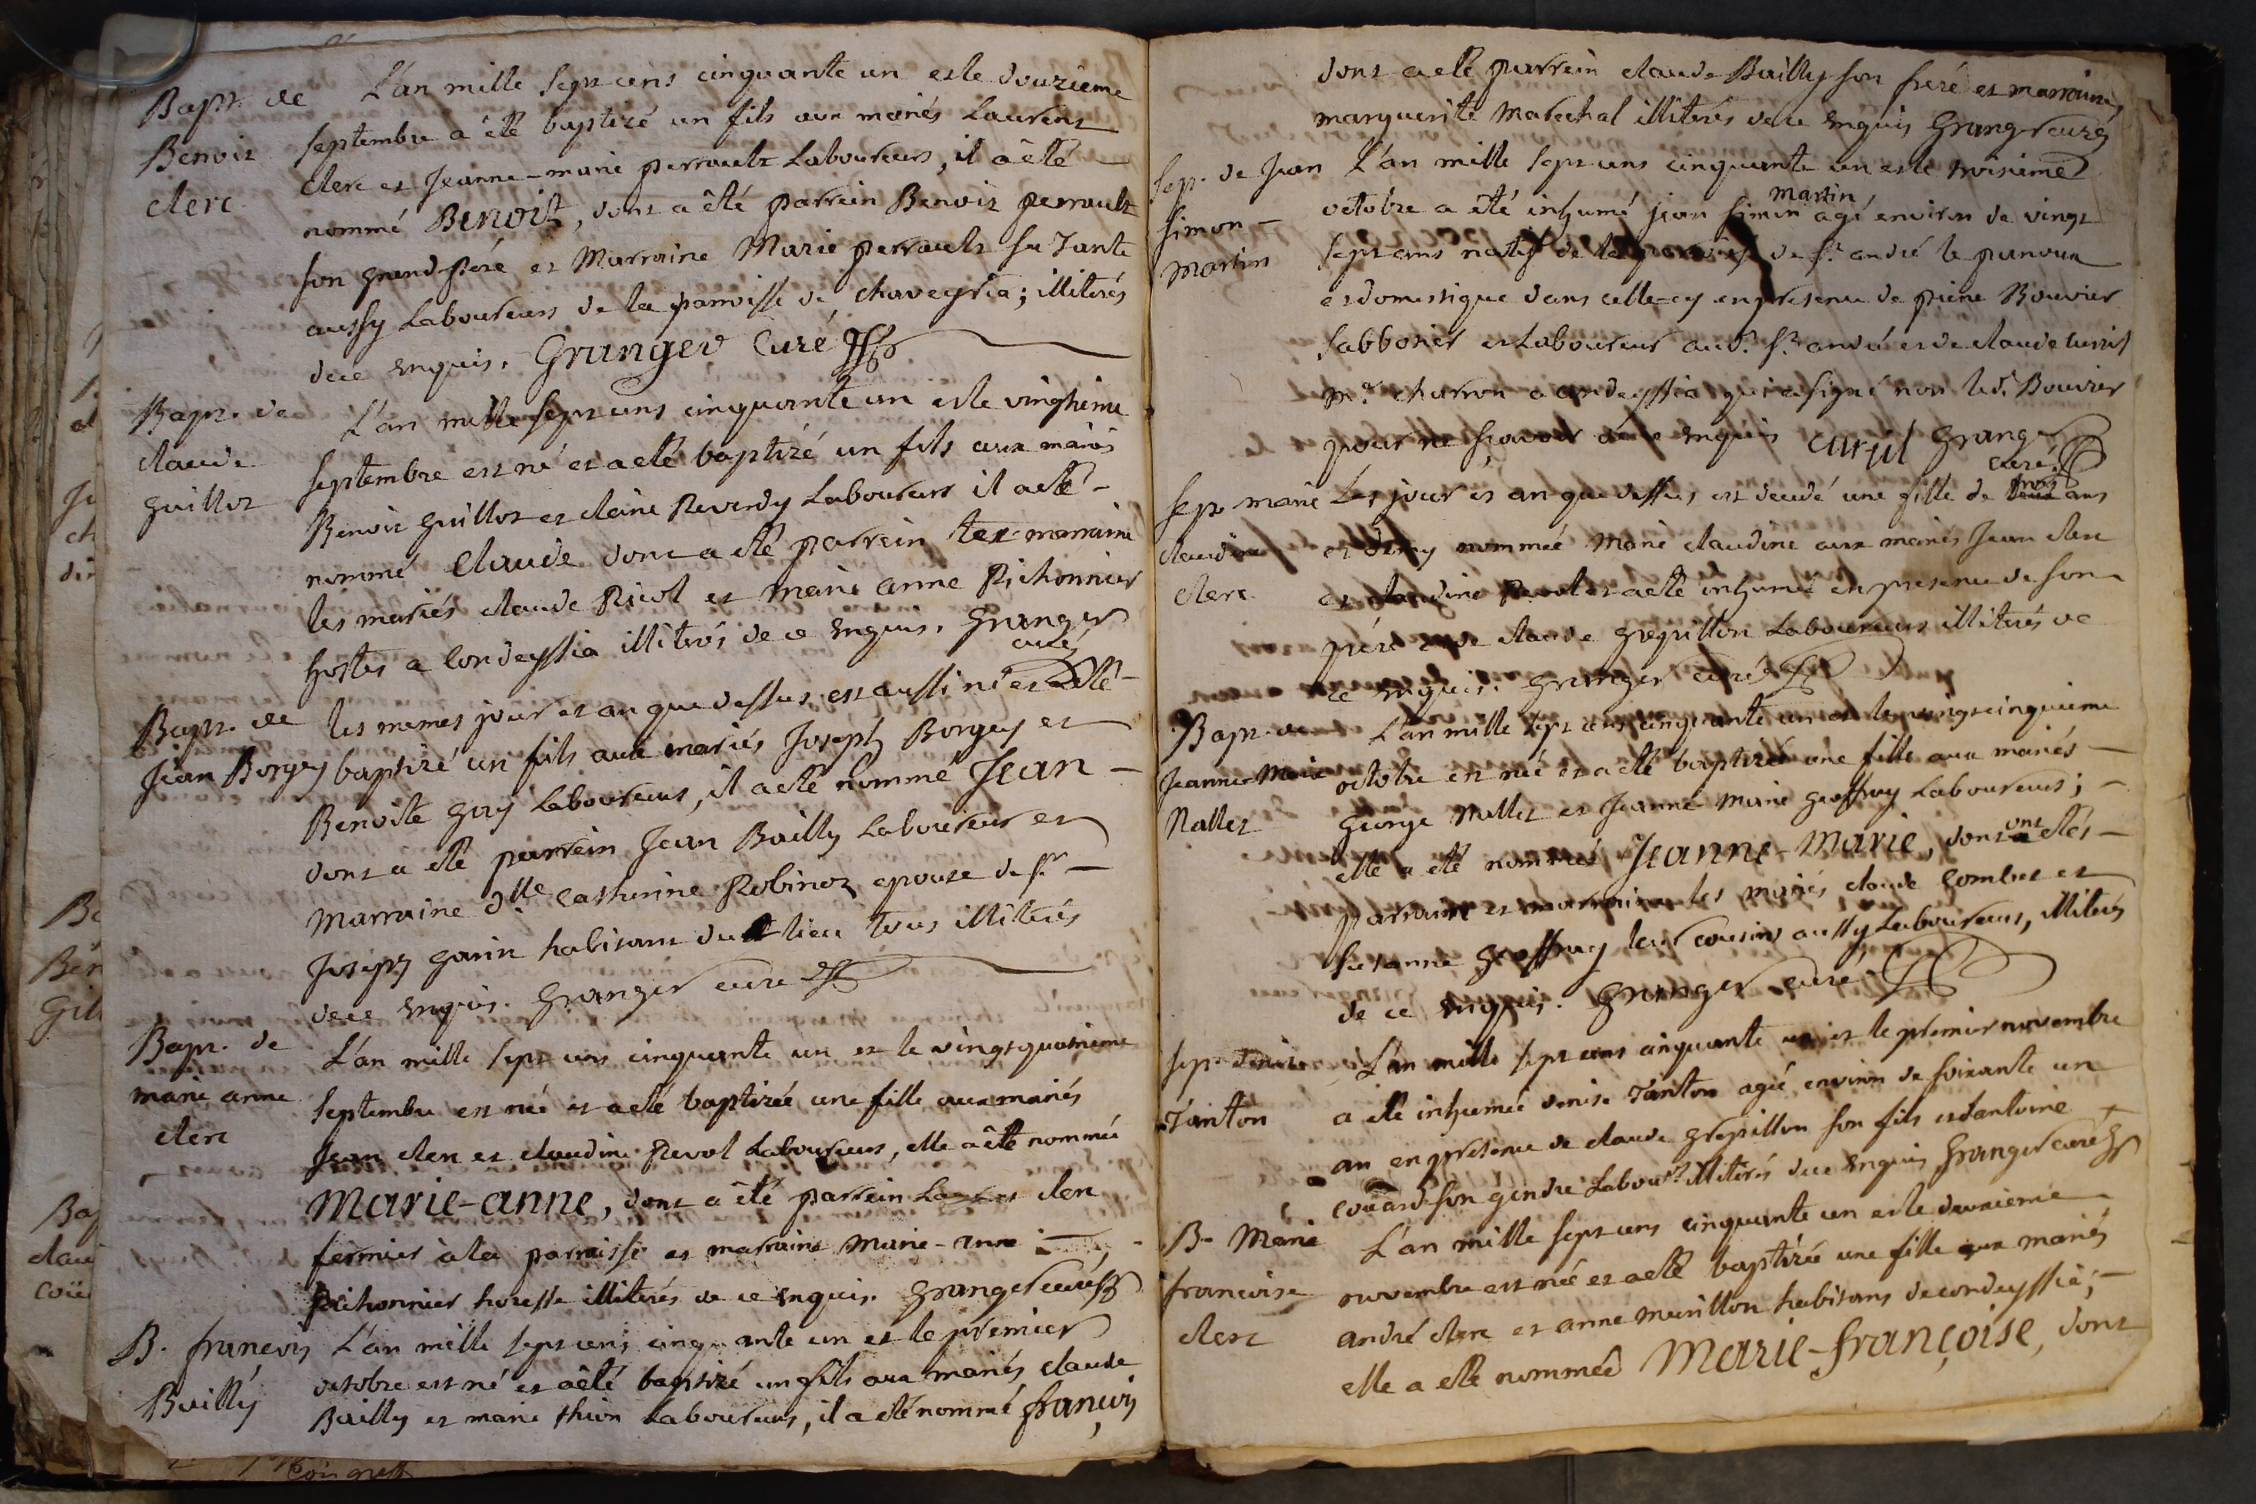 Bapt. de
Benoit
clerc
L'an mille sept cens cinquante un et le douzieme
septembre a êtê baptizé un fils aux mariés Laurent
clerc et Jeanne-marie perrault Laboureurs, il a êtê
nommé Benoit, dont a êtê parrein Benoit perrault
son grand-pere et Marraine Marie perrault sa Tante
aussy Laboureurs de la parroisse de chaveyria; illiterés
de ce Enquis. Granger Curé
Bapt. de
claude
guillot
L'an mille sept cens cinquante un et le vingtieme
septembre est né et a etê baptizé un fils aux mariés
Benoit guillot et claire Reverdy Laboureurs il a etê
nommé Claude dont a etê parrein et marraine
les mariés claude Ricol et marie anne Pichonnier
hostes a Condeyssia illiterés de ce Enquis. Granger
curé
Bapt. de
Jean Borgey
les memes jour et an que dessus est aussi né et a etê
baptizé un fils aux mariés Joseph Borgey et
Benoite guy Laboureurs, il a etê nommé Jean
dont a etê parrein Jean Bailly Laboureur et
Marraine dlle catherine Robinot epouse de sr
Joseph garin habitant du lieu tous illiterés
de ce Enquis. Granger curé
Bapt. de
marie anne
clerc
L'an mille sept cens cinquante un et le vingt quatrieme
septembre est née et a etê baptizée une fille aux mariés
Jean clerc et claudine Revol Laboureurs, elle a êtê nommée
Marie-anne, dont a êtê parrein clerc
fermier à la parroisse et marraine Marie-anne
pichonnier hotesse illiterés de ce enquis. Granger curé
B. francois
Bailly
L'an mille sept cens cinquante un et le premier
octobre est né et a êtê baptizé un fils aux mariés claude
Bailly et marie thion Laboureurs, il a etê nommé francois
dont a etê parrein claude Bailly son frere et marraine
marguerite Marechal illiterés de ce Enquis Granger curé
Sep. de Jean
simon
Martin
L'an mille sept cens cinquante un et le troisieme
octobre a êtê inhumé jean simon martin agé environ de vingt
sept ans natif de la parroisse de st andré le panoux
et domestique dans celle-cy en presence de piere Bouvier
sabbotier et Laboureur aud. st andré et de claude
me charron a condeyssia qui a signé non led. Bouvier
pour ne sçavoir de ce enquis Granger
curé
Sep. marie
claudine
clerc
Les jour et an que dessus est decedé une fille de trois ans
et demy nommée Marie claudine aux mariés Jean clerc
et claudine Revol et a etê inhumée en presence de son
pere et de claude grepillon Laboureurs illiterés de
ce enquis. Granger curé
Bapt. de
Jeanne-Marie
Nallet
L'an mille sept cens cinquante un et le vingt cinquieme
octobre est née et a etê baptizée une fille aux mariés
George Nallet et Jeanne Marie geoffray Laboureurs;
elle a etê nommée Jeanne-Marie, dont ont etés
parrain et marraine les mariés claude Combet et
Susanne geoffray leur cousins aussy Laboureurs, illiterés
de ce Enquis. Granger curé
Sep. denise
Tanton
L'an mille sept cens cinquante un et le premier novembre
a etê inhumée denise Tanton agée environ de soixante un
an en presence de claude grepillon son fils et d'antoine
coüard son gendre Labour. illiterés de ce Enquis Granger curé
B. Marie
francoise
clerc
L'an mille sept cens cinquante un et le deuxieme
novembre est née et a etê baptizée une fille aux mariés
andré clerc et anne murillon habitans de condeyssia;
elle a etê nommée Marie-françoise, dont